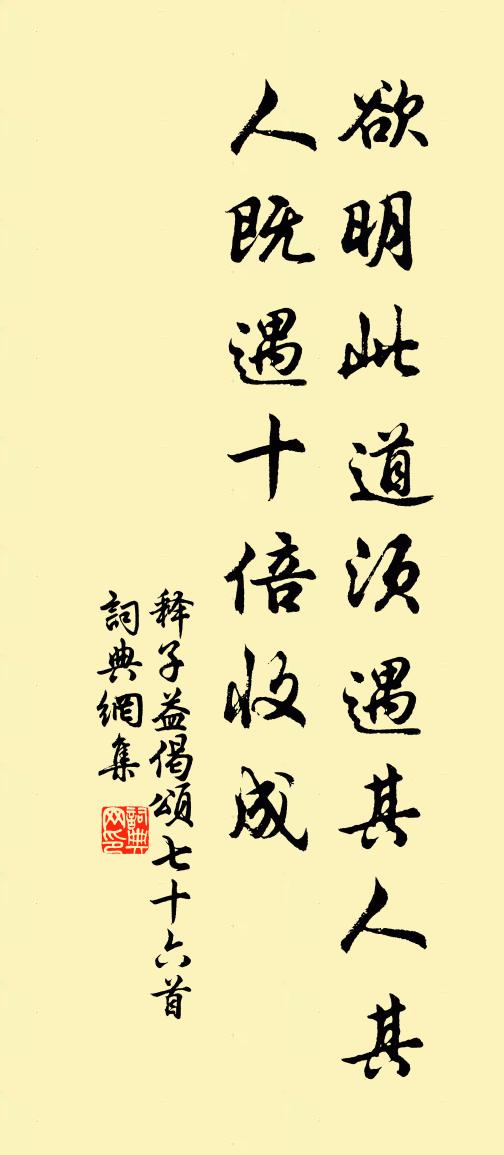 欲明此道须遇其人其
人既遇十倍收成
释子益偈颂七十六首
詞典網集
詞典网印